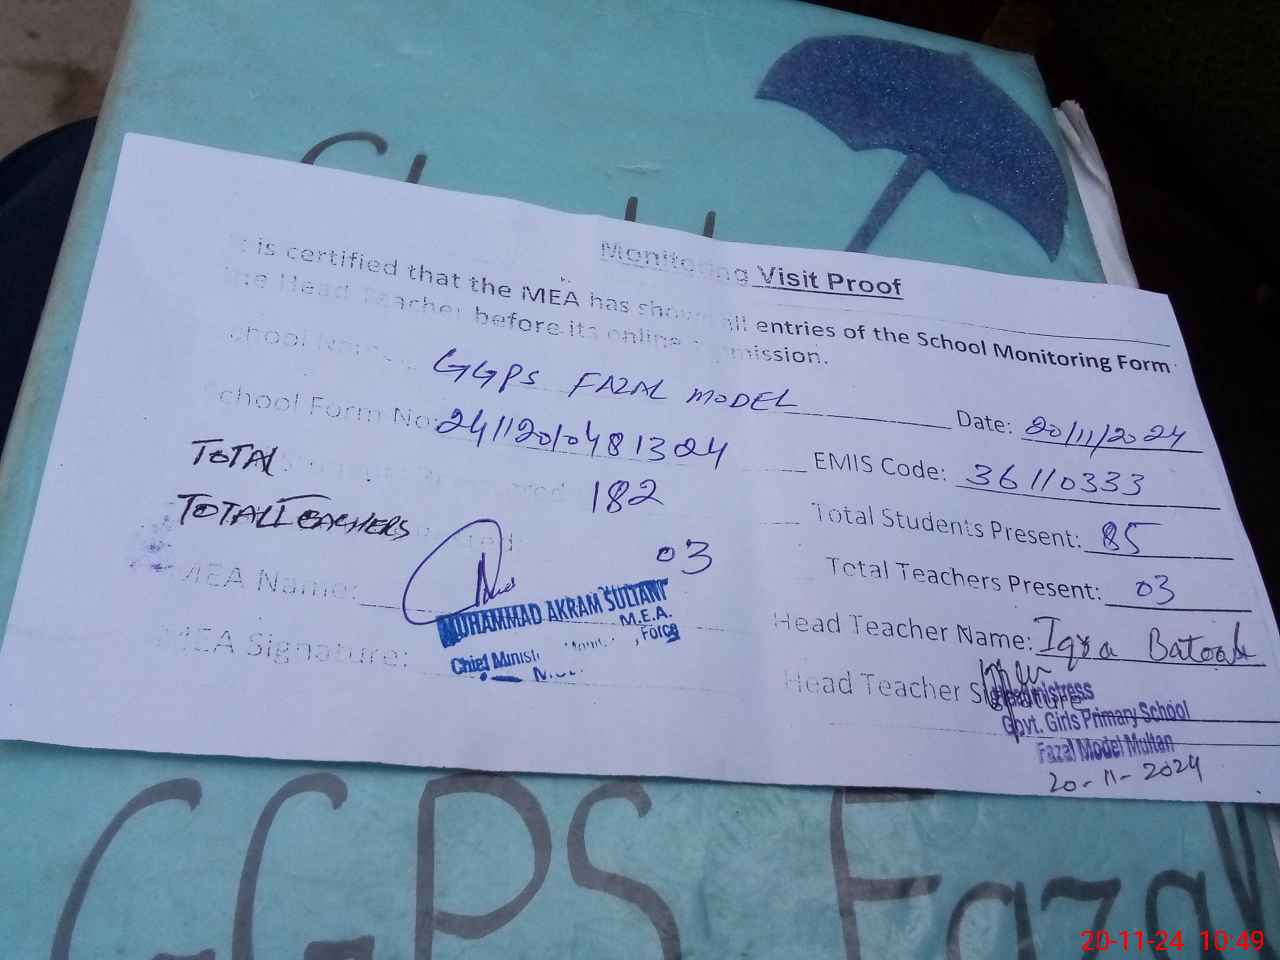 Monitoring Visit Proof
t is certified that the MEA has shown all entries of the School Monitoring Form
the Head Teacher before its online submission.
chool Name: GGPS FAZAL MODEL Date: 20/11/2024
chool Form No: 24112010481324 EMIS Code: 36110333
TOTAL 182 Total Students Present: 85
TOTAL TEACHERS 03 Total Teachers Present: 03
MEA Name: Head Teacher Name: Iqra Batool
MUHAMMAD AKRAM SULTANI
M.E.A.
Chief Minist Force
MEA Signature: Head Teacher Signature
Headmistress
Govt. Girls Primary School
Fazal Model Multan
20-11-2024
GGPS Fazal
20-11-24 10:49